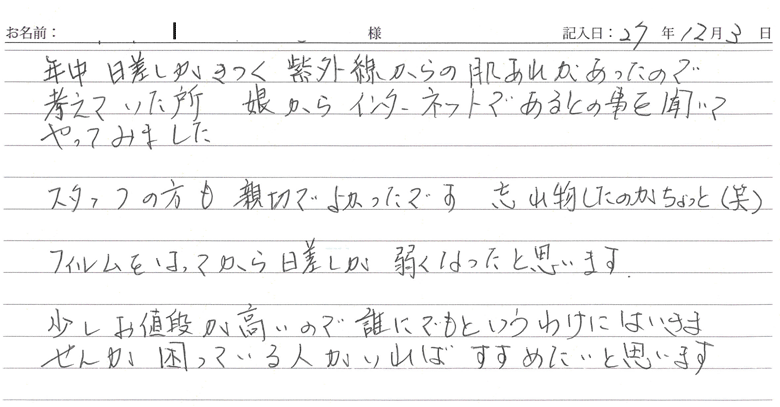 お名前： 様 記入日：27年12月3日
年中 日差しがきつく 紫外線からの肌あれがあったので
考えていた所 娘から インターネットであるとの事を聞いて
やってみました
スタッフの方も 親切でよかったです 忘れ物したのがちょっと(笑)
フィルムをはってから 日差しが 弱くなったと思います.
少しお値段が高いので 誰にでもというわけにはいきま
せんが 困っている人がいれば すすめたいと思います